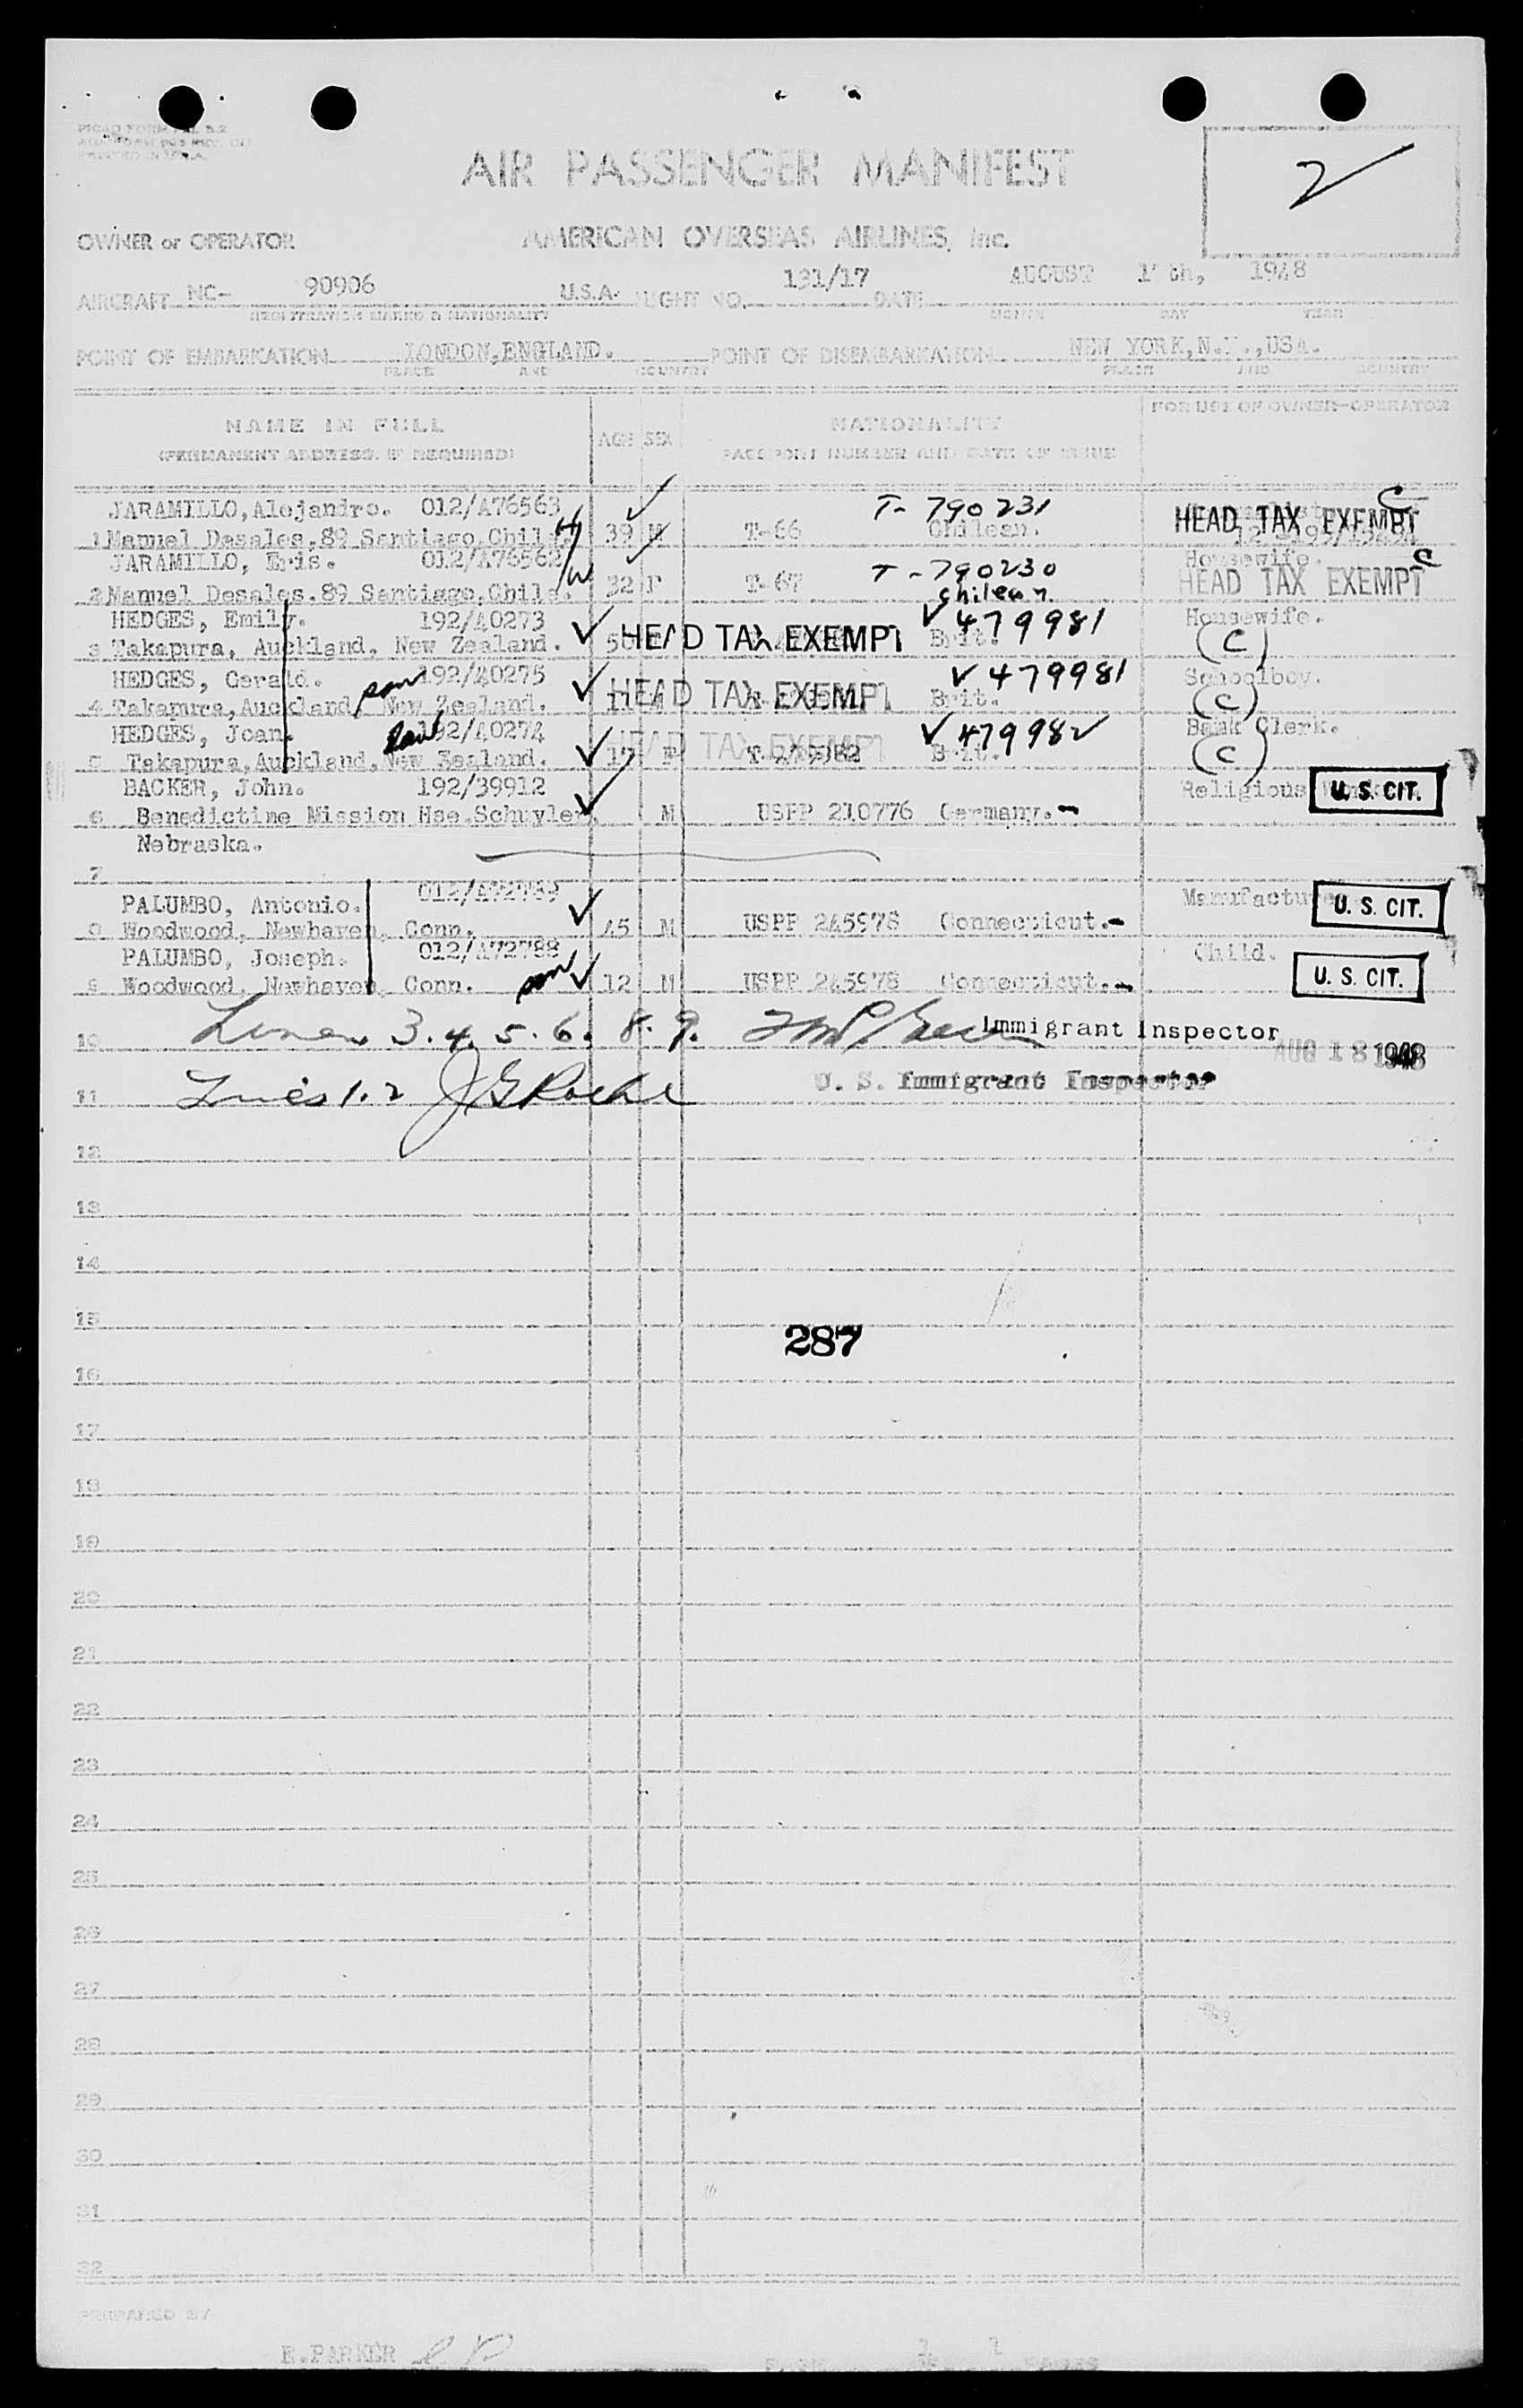 PRINTED IN U.S.A.
2
AIR PASSENGER MANIFEST
OWNER or OPERATOR AMERICAN OVERSEAS AIRLINES, Inc.
AIRCRAFT NC- 90906 U.S.A. FLIGHT NO. 131/17 DATE AUGUST 1948
REGISTRATION MARKS & NATIONALITY MONTH DAY YEAR
POINT OF EMBARKATION LONDON,ENGLAND. POINT OF DISEMBARKATION NEW YORK,N.Y.,USA.
PLACE AND COUNTRY PLACE AND COUNTRY
NAME IN FULL AGE SEX NATIONALITY FOR USE OF OWNER-OPERATOR
(PERMANENT ADDRESS, IF REQUIRED) PASSPORT NUMBER AND DATE OF ISSUE
JARAMILLO,Alejandro. 012/A76563 T- 790231 C
1 Manuel Desales,89 Santiago,Chile H 39 M T-66 Chilean. HEAD TAX EXEMPT
JARAMILLO, Eris. 012/A76562 T-790230 Housewife. C
2 Manuel Desales.89 Santiago,Chile. W 32 F T-67 Chilean. HEAD TAX EXEMPT
HEDGES, Emily. 192/40273 479981 Housewife.
3 Takapura, Auckland, New Zealand. HEAD TAX EXEMPT Brit. (C)
HEDGES, Gerald. 192/40275 479981 Schoolboy.
4 Takapura,Auckland, New Zealand. son 11 HEAD TAX EXEMPT Brit. (C)
HEDGES, Joan. 192/40274 479982 Bank Clerk.
5 Takapura,Auckland,New Zealand. dau 17 F HEAD TAX EXEMPT Brit. (C)
BACKER, John. 192/39912 Religious U. S. CIT.
6 Benedictine Mission Hse.Schuyler, M USPP 210776 Germany.
Nebraska.
7
PALUMBO, Antonio. 012/A72789 Manufacturer U. S. CIT.
8 Woodwood, Newhaven, Conn. 45 M USPP 245978 Connecticut.
PALUMBO, Joseph. 012/A72788 Child.
9 Woodwood, Newhaven, Conn. son 12 M USPP 245978 Connecticut. U. S. CIT.
10 Lines 3. 4. 5. 6. 8. 9. Immigrant Inspector AUG 18 1948
11 Lines 1.2 J G Roche U. S. Immigrant Inspector
12
13
14
15
287
16
17
18
19
20
21
22
23
24
25
26
27
28
29
30
31
32
PREPARED BY
E.PARKER